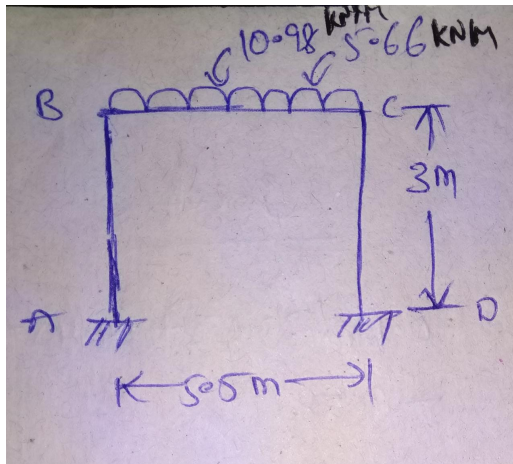 10.98 KN/M 5.66 KNM
B C
3M
A D
5.5m